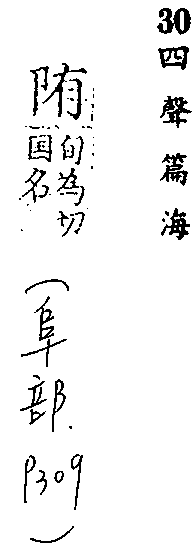 30四聲篇海
陏
旬為切
国名
(阜部.P309)